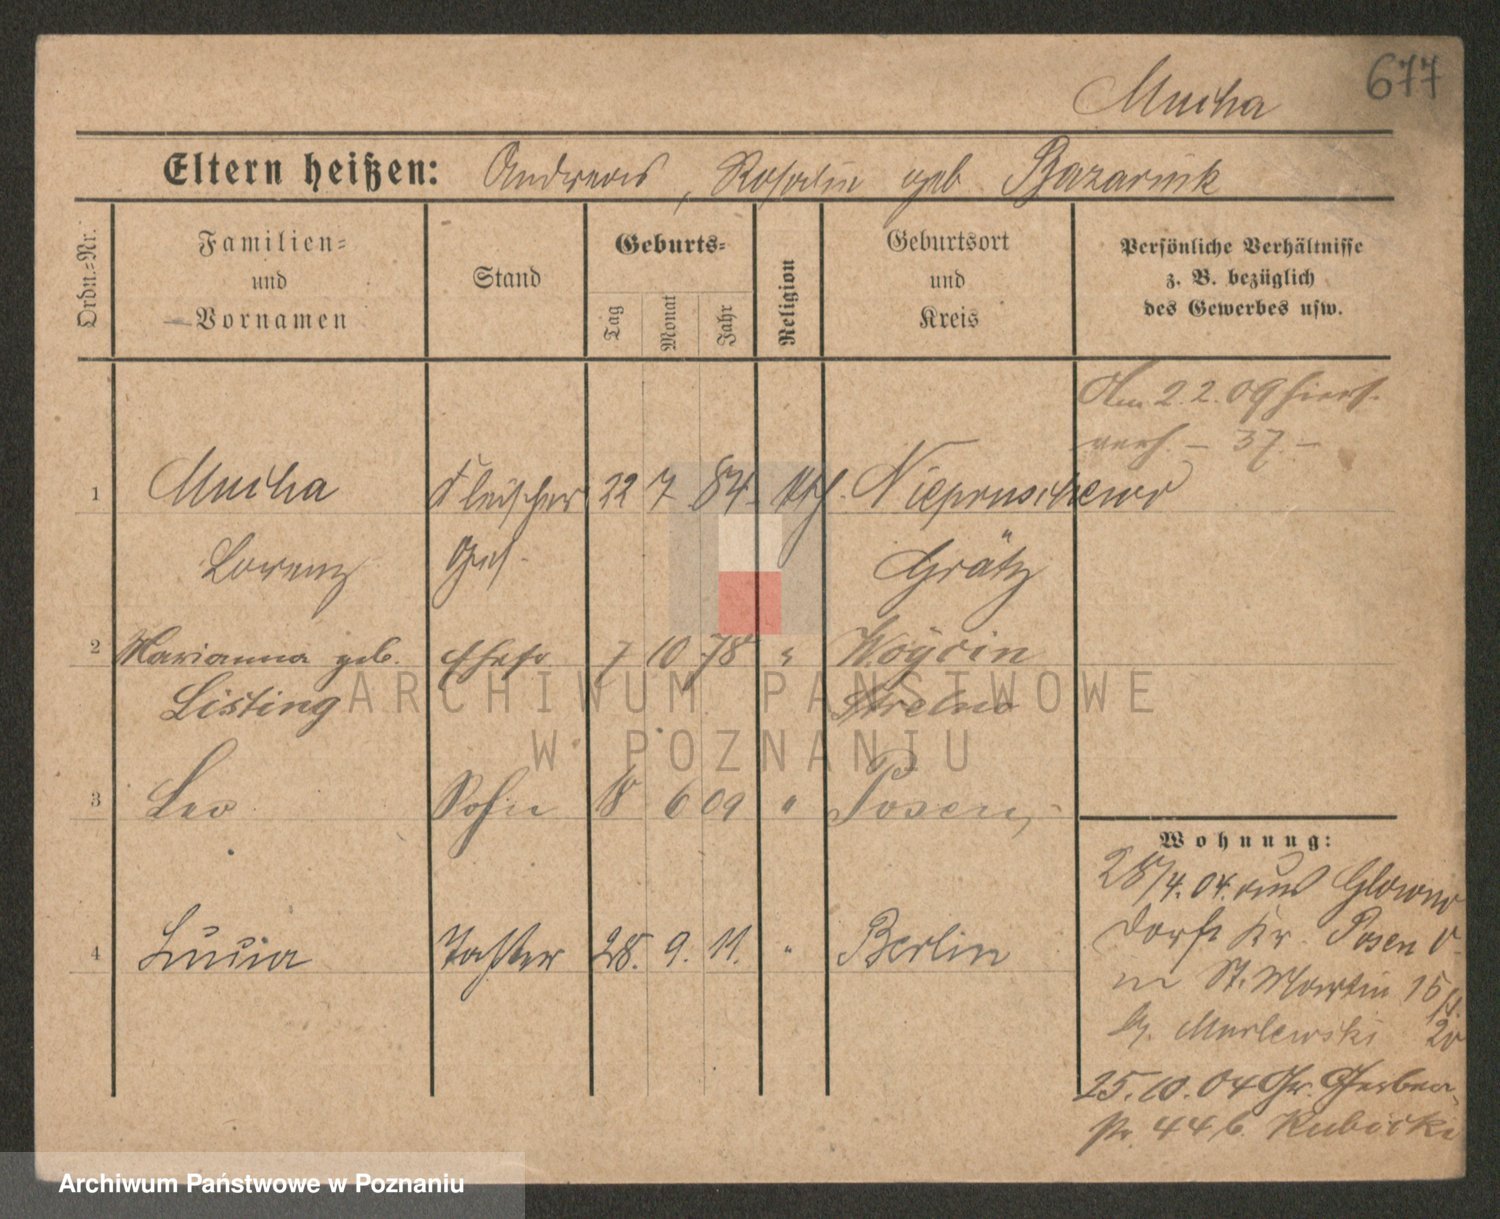 677
Mucha
Eltern heißen: Andreas, Rosalie geb. Bazarnik
Ordn.=Nr.
Familien=
und
Vornamen
Stand
Geburts=
Tag
Monat
Jahr
Religion
Geburtsort
und
Kreis
Persönliche Verhältnisse
z. B. bezüglich
des Gewerbes usw.
Am 2.2.09 hiers.
verh. – 37. –
1 Mucha Fleischer 22 7 84 kth. Niepruschewo
Lorenz Ges. Grätz
2 Marianna geb. Ehefr. 7 10 78 " Wógcin
Listing Strelno
3 Leo Sohn 18 6 09 " Posen
4 Lucia Tochter 28. 9. 11. " Berlin
Wohnung:
28/4.04. aus Glowno
Dorf Kr. Posen O.
in St. Martin 15
b. Murlewski 20
25.10.04 Gr. Gerber
str. 44 b. Kubicki
ARCHIWUM PAŃSTWOWE
W POZNANIU
Archiwum Państwowe w Poznaniu